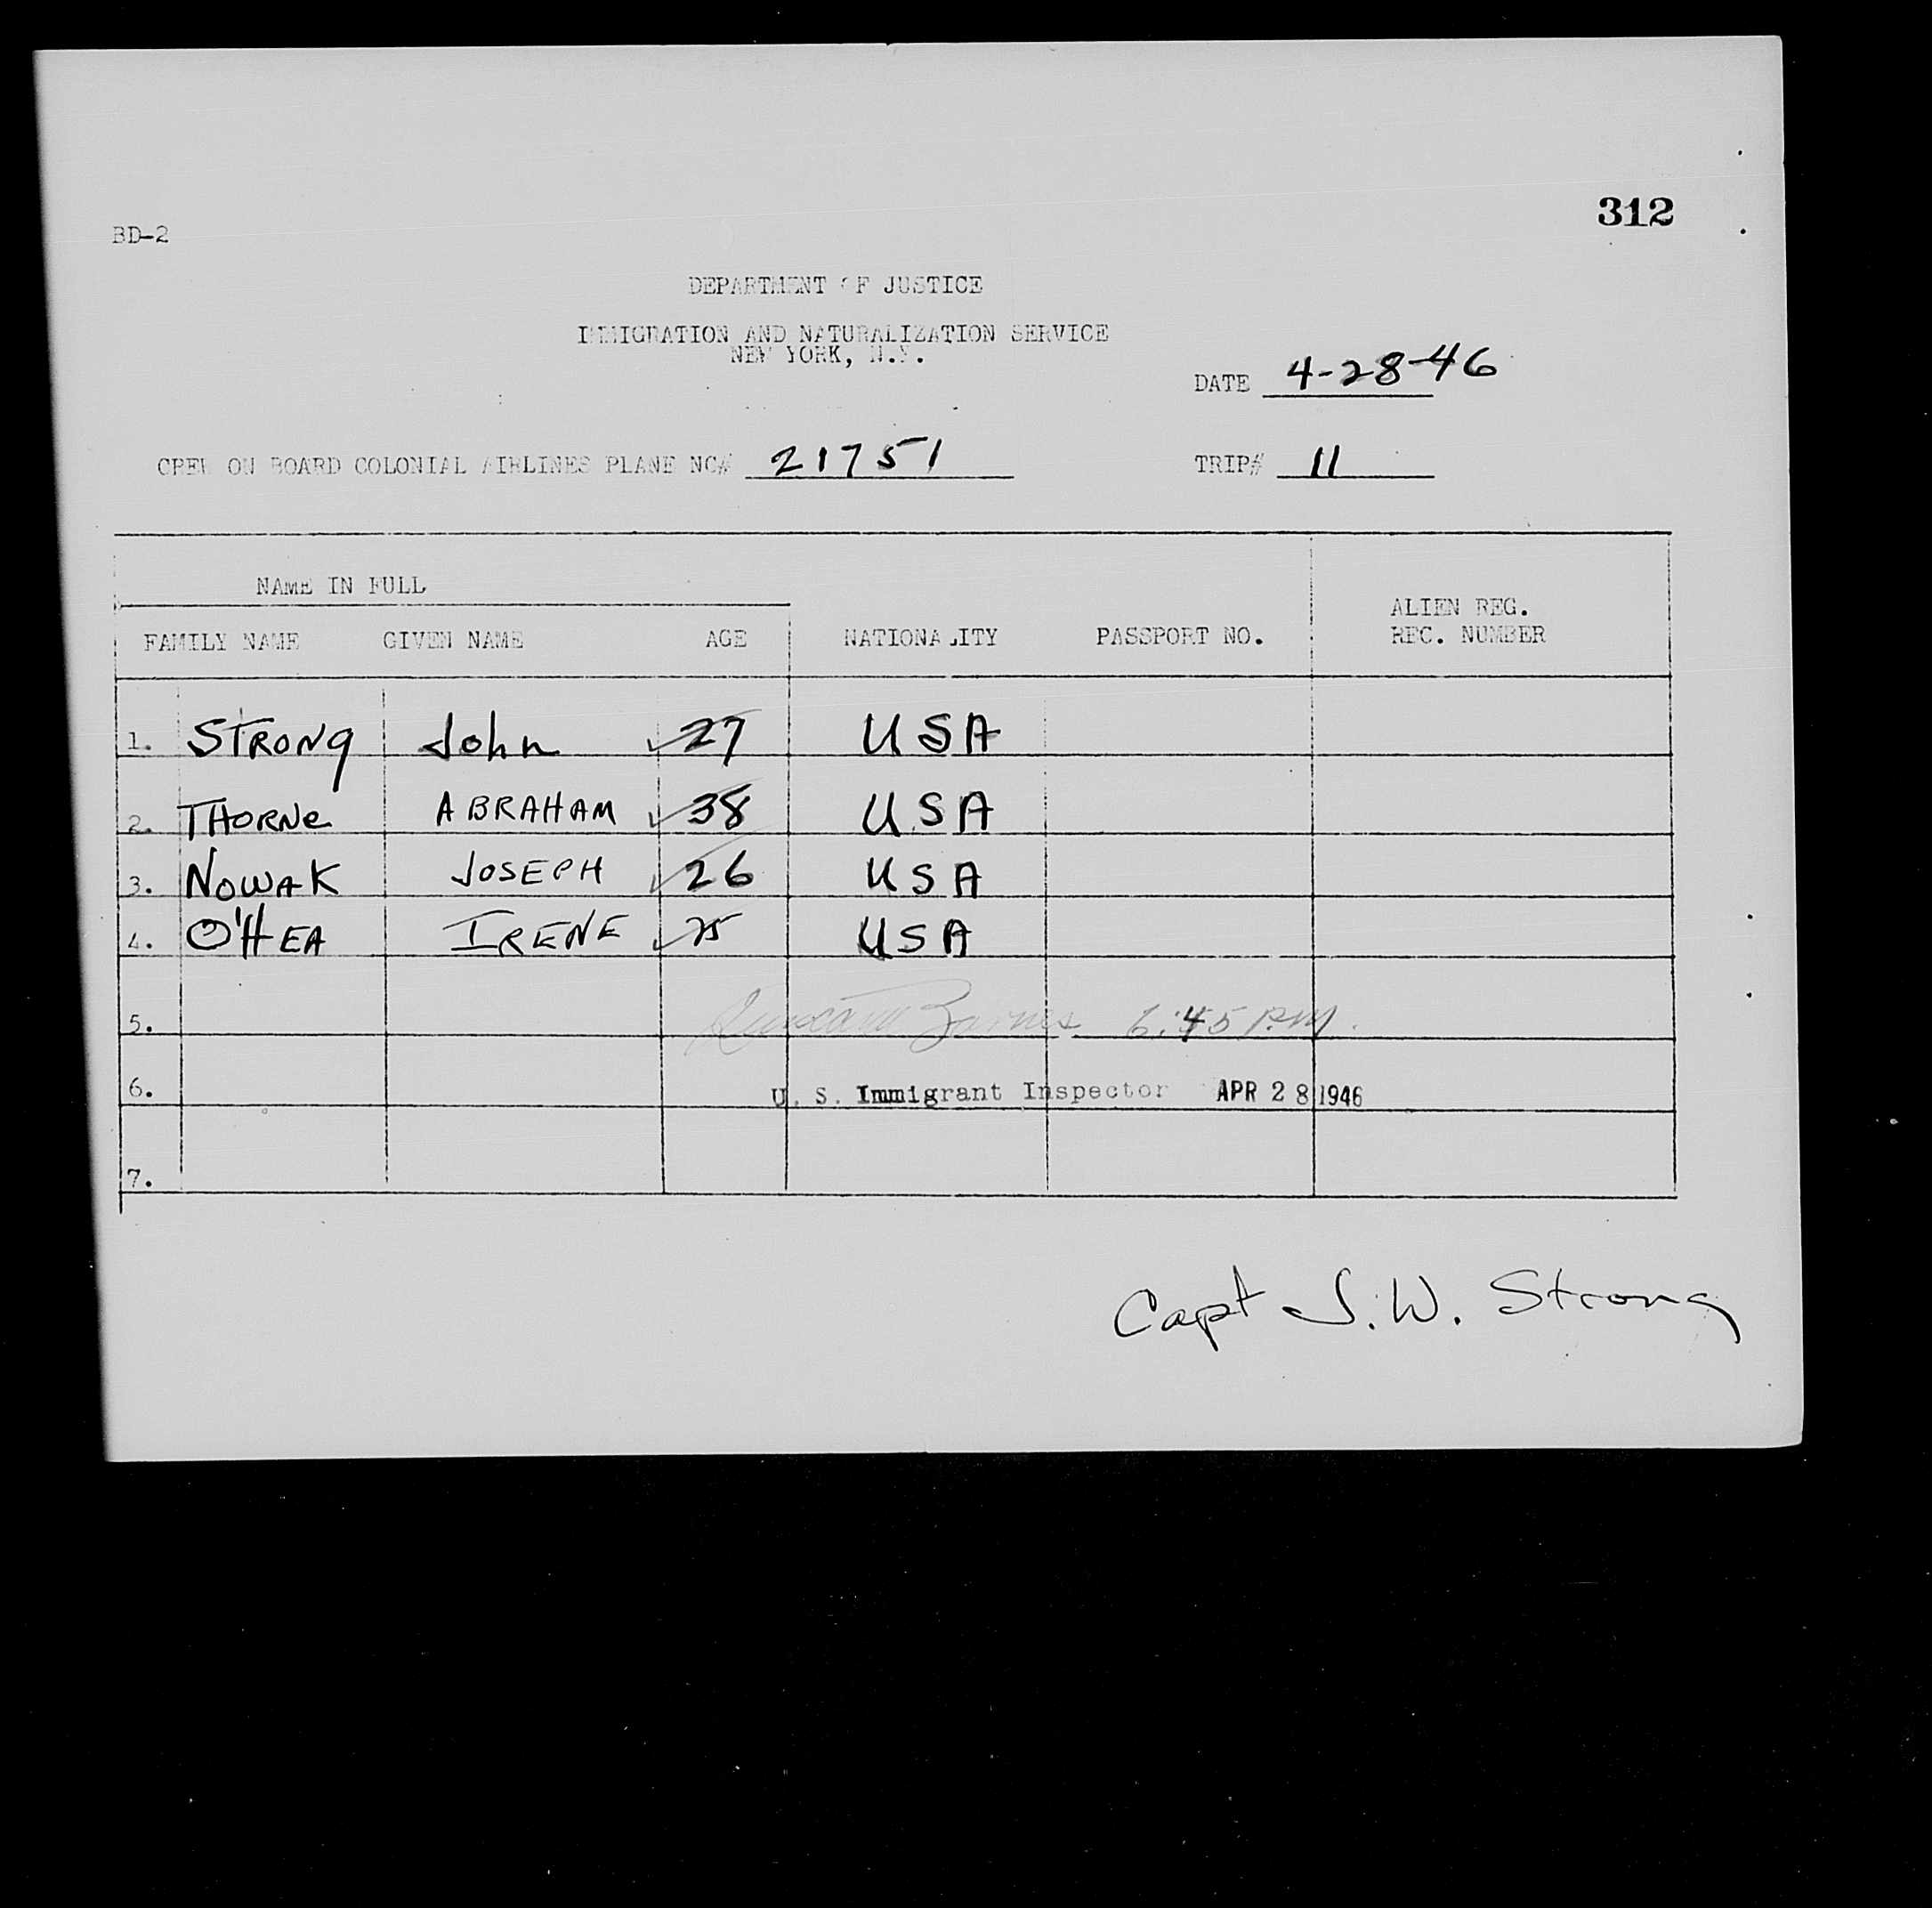 312
BD-2
DEPARTMENT OF JUSTICE
IMMIGRATION AND NATURALIZATION SERVICE
NEW YORK, N.Y.
DATE 4-28-46
CREW ON BOARD COLONIAL AIRLINES PLANE NC# 21751 TRIP# 11
NAME IN FULL
ALIEN REG.
FAMILY NAME GIVEN NAME AGE NATIONALITY PASSPORT NO. REC. NUMBER
1. STRONG John ✓ 27 USA
2. THORNe ABRAHAM ✓ 38 USA
3. NOWAK JOSEPH ✓ 26 USA
4. O'HEA IRENE ✓ 25 USA
5. Barnes 6:45 P.M.
6. U. S. Immigrant Inspector APR 28 1946
7.
Capt J.W. Strong